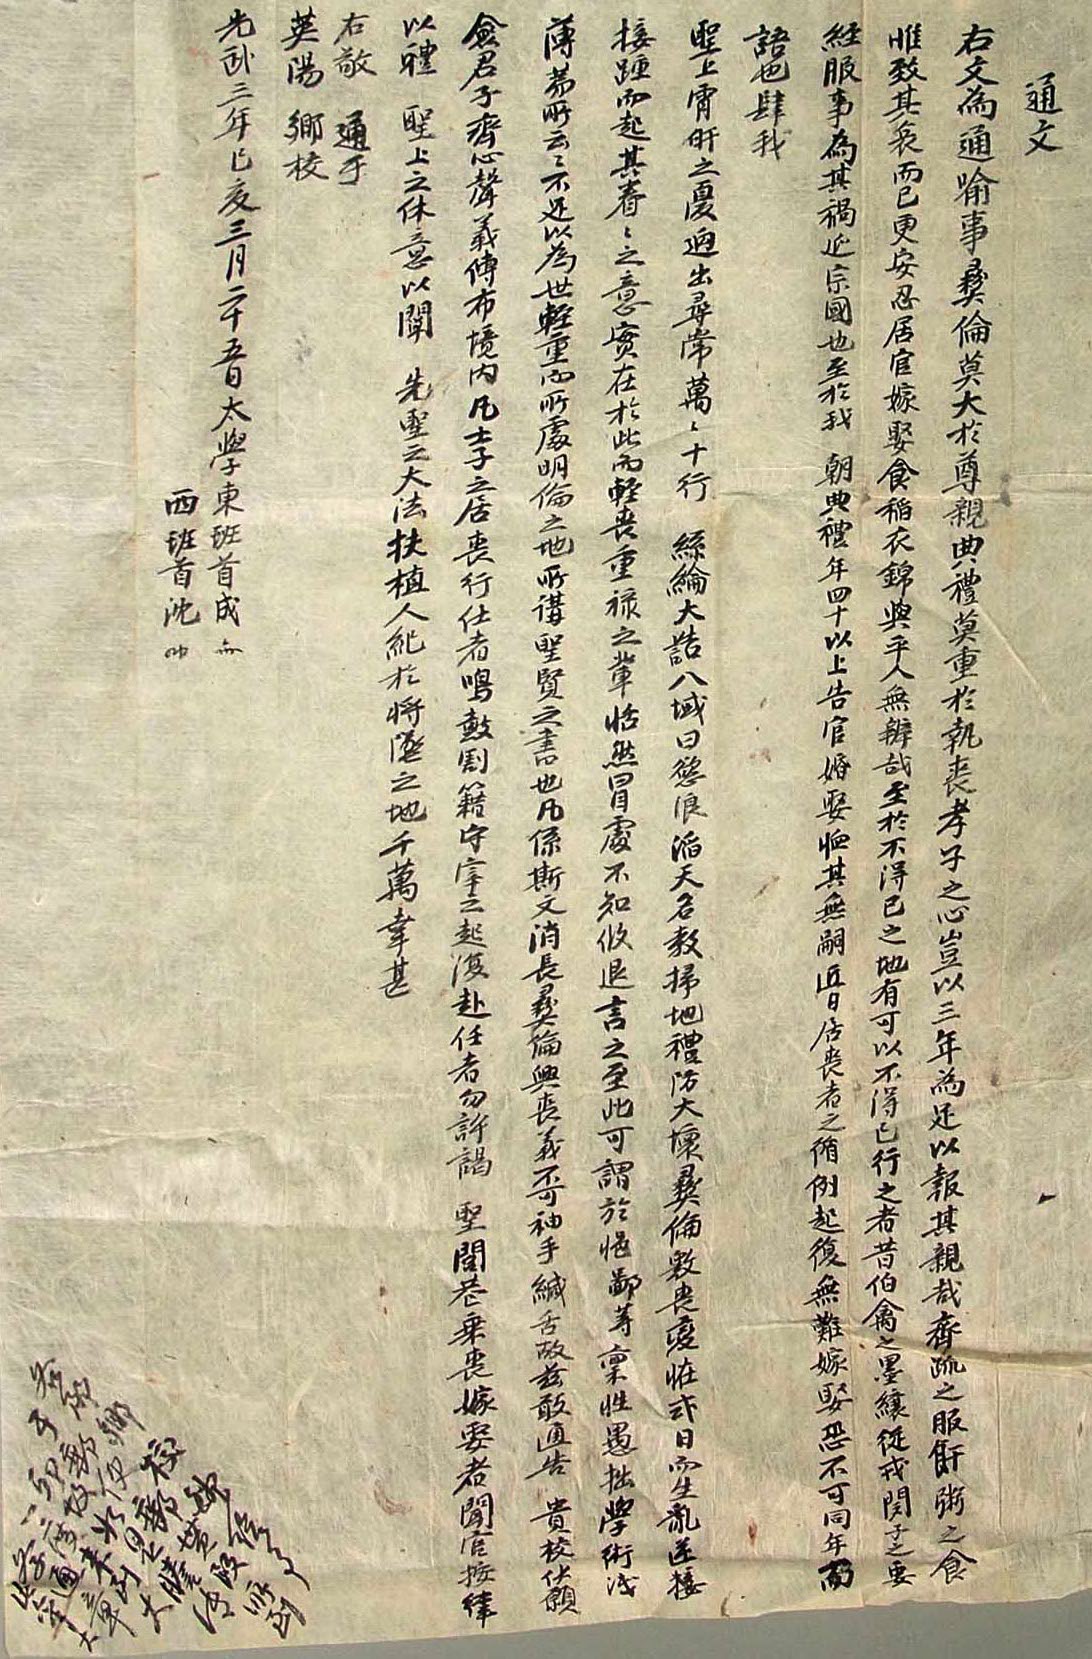 通文
右文為通喻事彛倫莫大於尊親典禮莫重於執喪孝子之心豈以三年為足以報其親哉齊疏之服飦粥之食
惟致其哀而已更安忍居官嫁娶食稻衣錦與平人無辨哉至於不得已之地有可以不得已行之者昔伯禽之墨縗從戎閔子之要
絰服事為其禍近宗國也至於我 朝典禮年四十以上告官婚娶恤其無嗣近日居喪者之循例起復無難嫁娶恐不可同年而
語也肆我
聖上宵旰之憂逈出尋常萬〻十行 絲綸大誥八域曰慾浪滔天名教掃地禮防大壞彛倫斁喪變恠式日而生亂逆接
接踵而起其眷〻之意實在於此而輕喪重祿之輩恬然冒處不知攸退言之至此可謂於悒鄙等禀性愚拙學術淺
薄茅所云〻不足以為世輕重而所處明倫之地所講聖賢之書也凡係斯文消長彛倫興喪義不可袖手緘舌故玆敢通告 貴校伏願
僉君子齊心聲義傳布境內凡士子之居喪行仕者鳴皷割籍守宰之起復赴任者勿許謁 聖閭巷乗喪嫁娶者聞官按律
以體 聖上之休意以闡 先聖之大法扶植人紀於將墜之地千萬幸甚
右敬 通于
英陽 鄉校
光武三年己亥三月二十五日太學東班首成
西班首沈